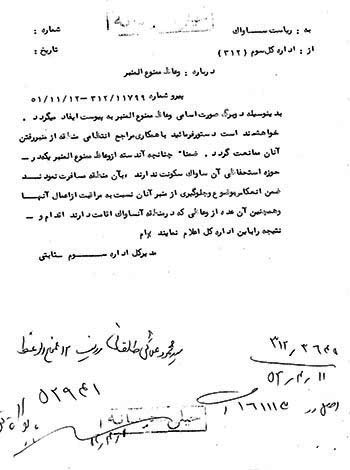 به : ریاست ساواک
شماره :
از : اداره کل سوم (۳۱۲)
تاریخ :
درباره : وعاظ ممنوع المنبر
پیرو شماره ۳۱۲/۱۱۷۹۹ – ۵۱/۱۱/۱۲
بدینوسیله صورت اسامی وعاظ ممنوع المنبر به پیوست ایفاد میگردد .
خواهشمند است دستور فرمائید با همکاری مراجع انتظامی منطقه از منبر رفتن
آنان ممانعت گردد . ضمنا" چنانچه آندسته از وعاظ ممنوع المنبر که در
حوزه استحفاظی آن ساواک سکونت ندارند بآن منطقه مسافرت نمودند
ضمن انعکاس موضوع و جلوگیری از منبر آنان نسبت به مراقبت از اعمال آنها
و همچنین آن عده از وعاظی که در منطقه آنساواک اقامت دارند اقدام و –
نتیجه را باین اداره کل اعلام نمایند
مدیرکل اداره سوم
سید محمود علائی طالقانی ردیف ۱۲
۳۱۲/۳۶۴۹
۵۲/۴/۱۱
۵۲۹۴۱
اصل در ۱۶۱۱۱۳